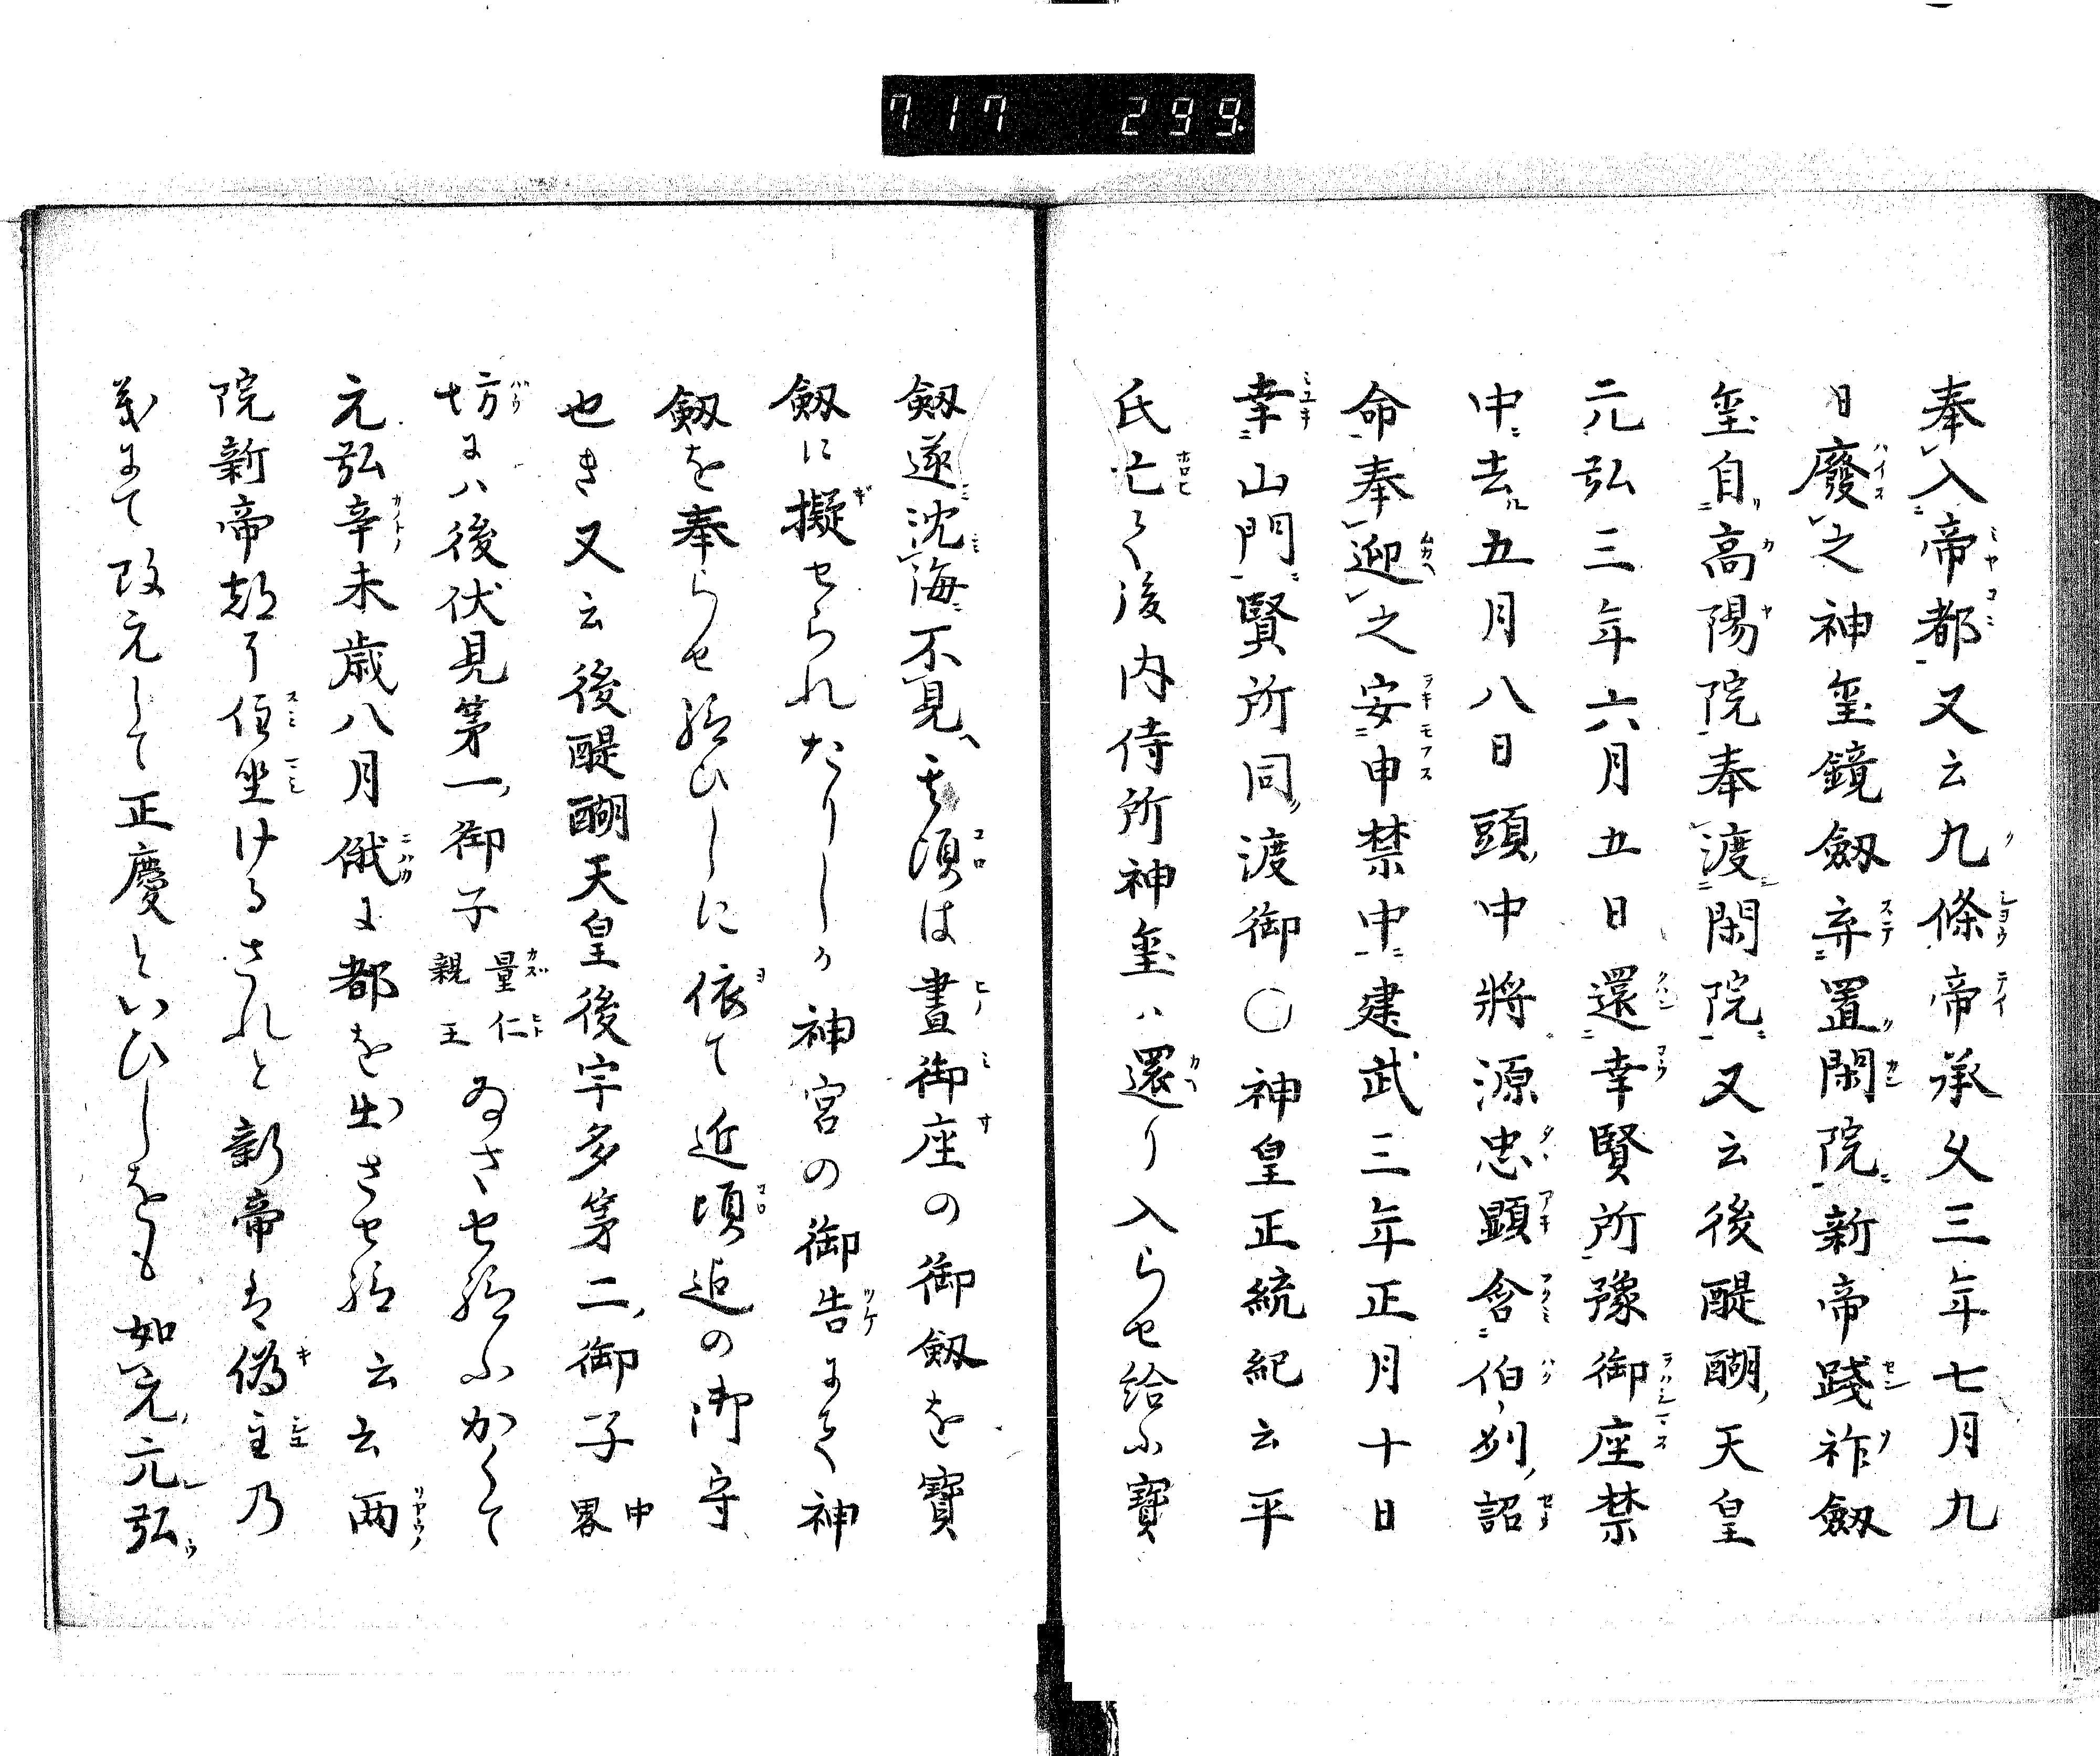 717 299.
奉入帝都又云九條帝承久三年七月九
日廢之神璽鏡劔弃置閑院新帝踐祚劔
璽自高陽院奉渡閑院又云後醍醐天皇
元弘三年六月五日還幸賢所豫御座禁
中去五月八日頭中將源忠顕含伯州詔
命奉迎之安申禁中建武三年正月十日
幸山門賢所同渡御〇神皇正統紀云平
氏亡て後内侍所神璽ハ還り入らせ給ふ寶
劔遂沈海不見其頃は晝御座の御劔を寶
劔に擬せられたりしか神宮の御告にて神
劔を奉らせ給ひしに依て近頃迠の御守
也き又云後醍醐天皇後宇多第二御子中畧
坊にハ後伏見第一御子量仁親王ゐさせ給ふかくて
元弘辛未歳八月俄に都を出させ給云云両
院新帝都に住坐けるされと新帝は偽主乃
義にて改元して正慶といひしをも如元元弘